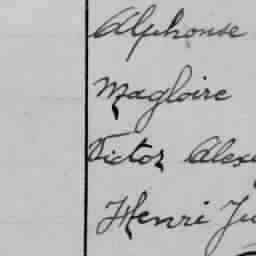 Alphonse
Magloire
Victor
Henri